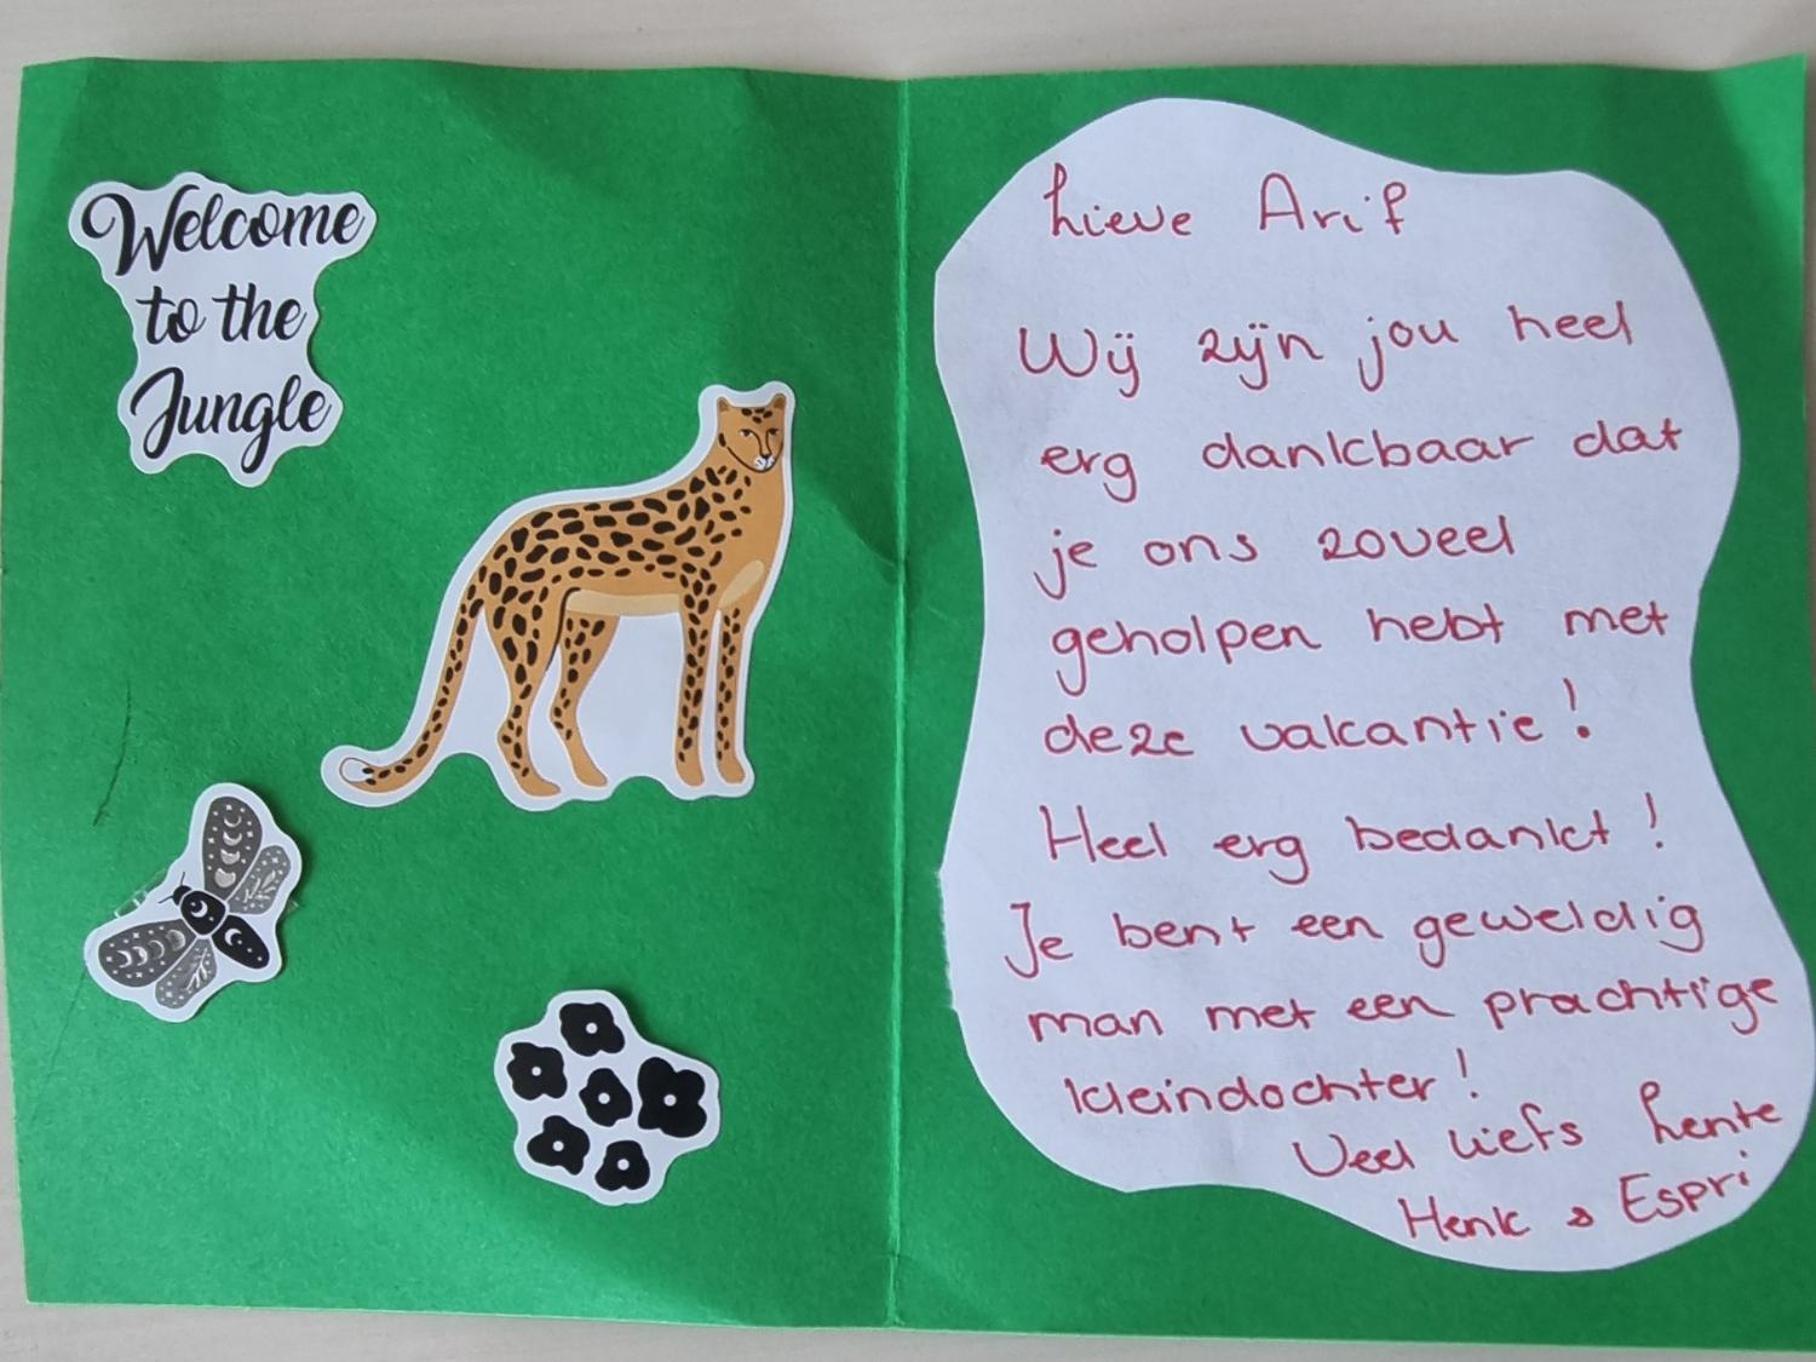 Welcome
to the
Jungle
Lieve Arif
Wij zijn jou heel
erg dankbaar dat
je ons zoveel
geholpen hebt met
deze vakantie!
Heel erg bedankt!
Je bent een geweldig
man met een prachtige
kleindochter!
Veel liefs Lente
Henk & Espri